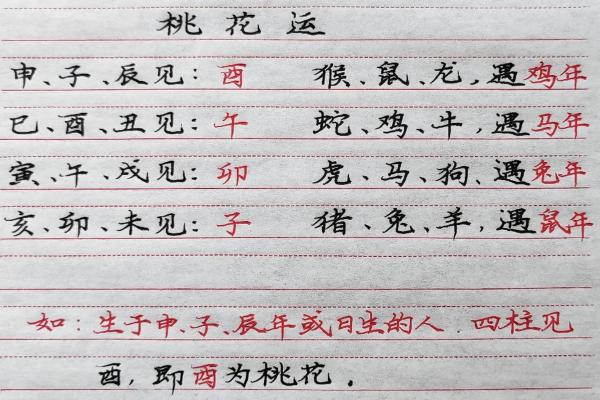 桃花运
申、子、辰见：酉 猴、鼠、龙，遇鸡年
巳、酉、丑见：午 蛇、鸡、牛，遇马年
寅、午、戌见：卯 虎、马、狗、遇兔年
亥、卯、未见：子 猪、兔、羊，遇鼠年
如：生于申、子、辰年或日生的人．四柱见
酉，即酉为桃花．